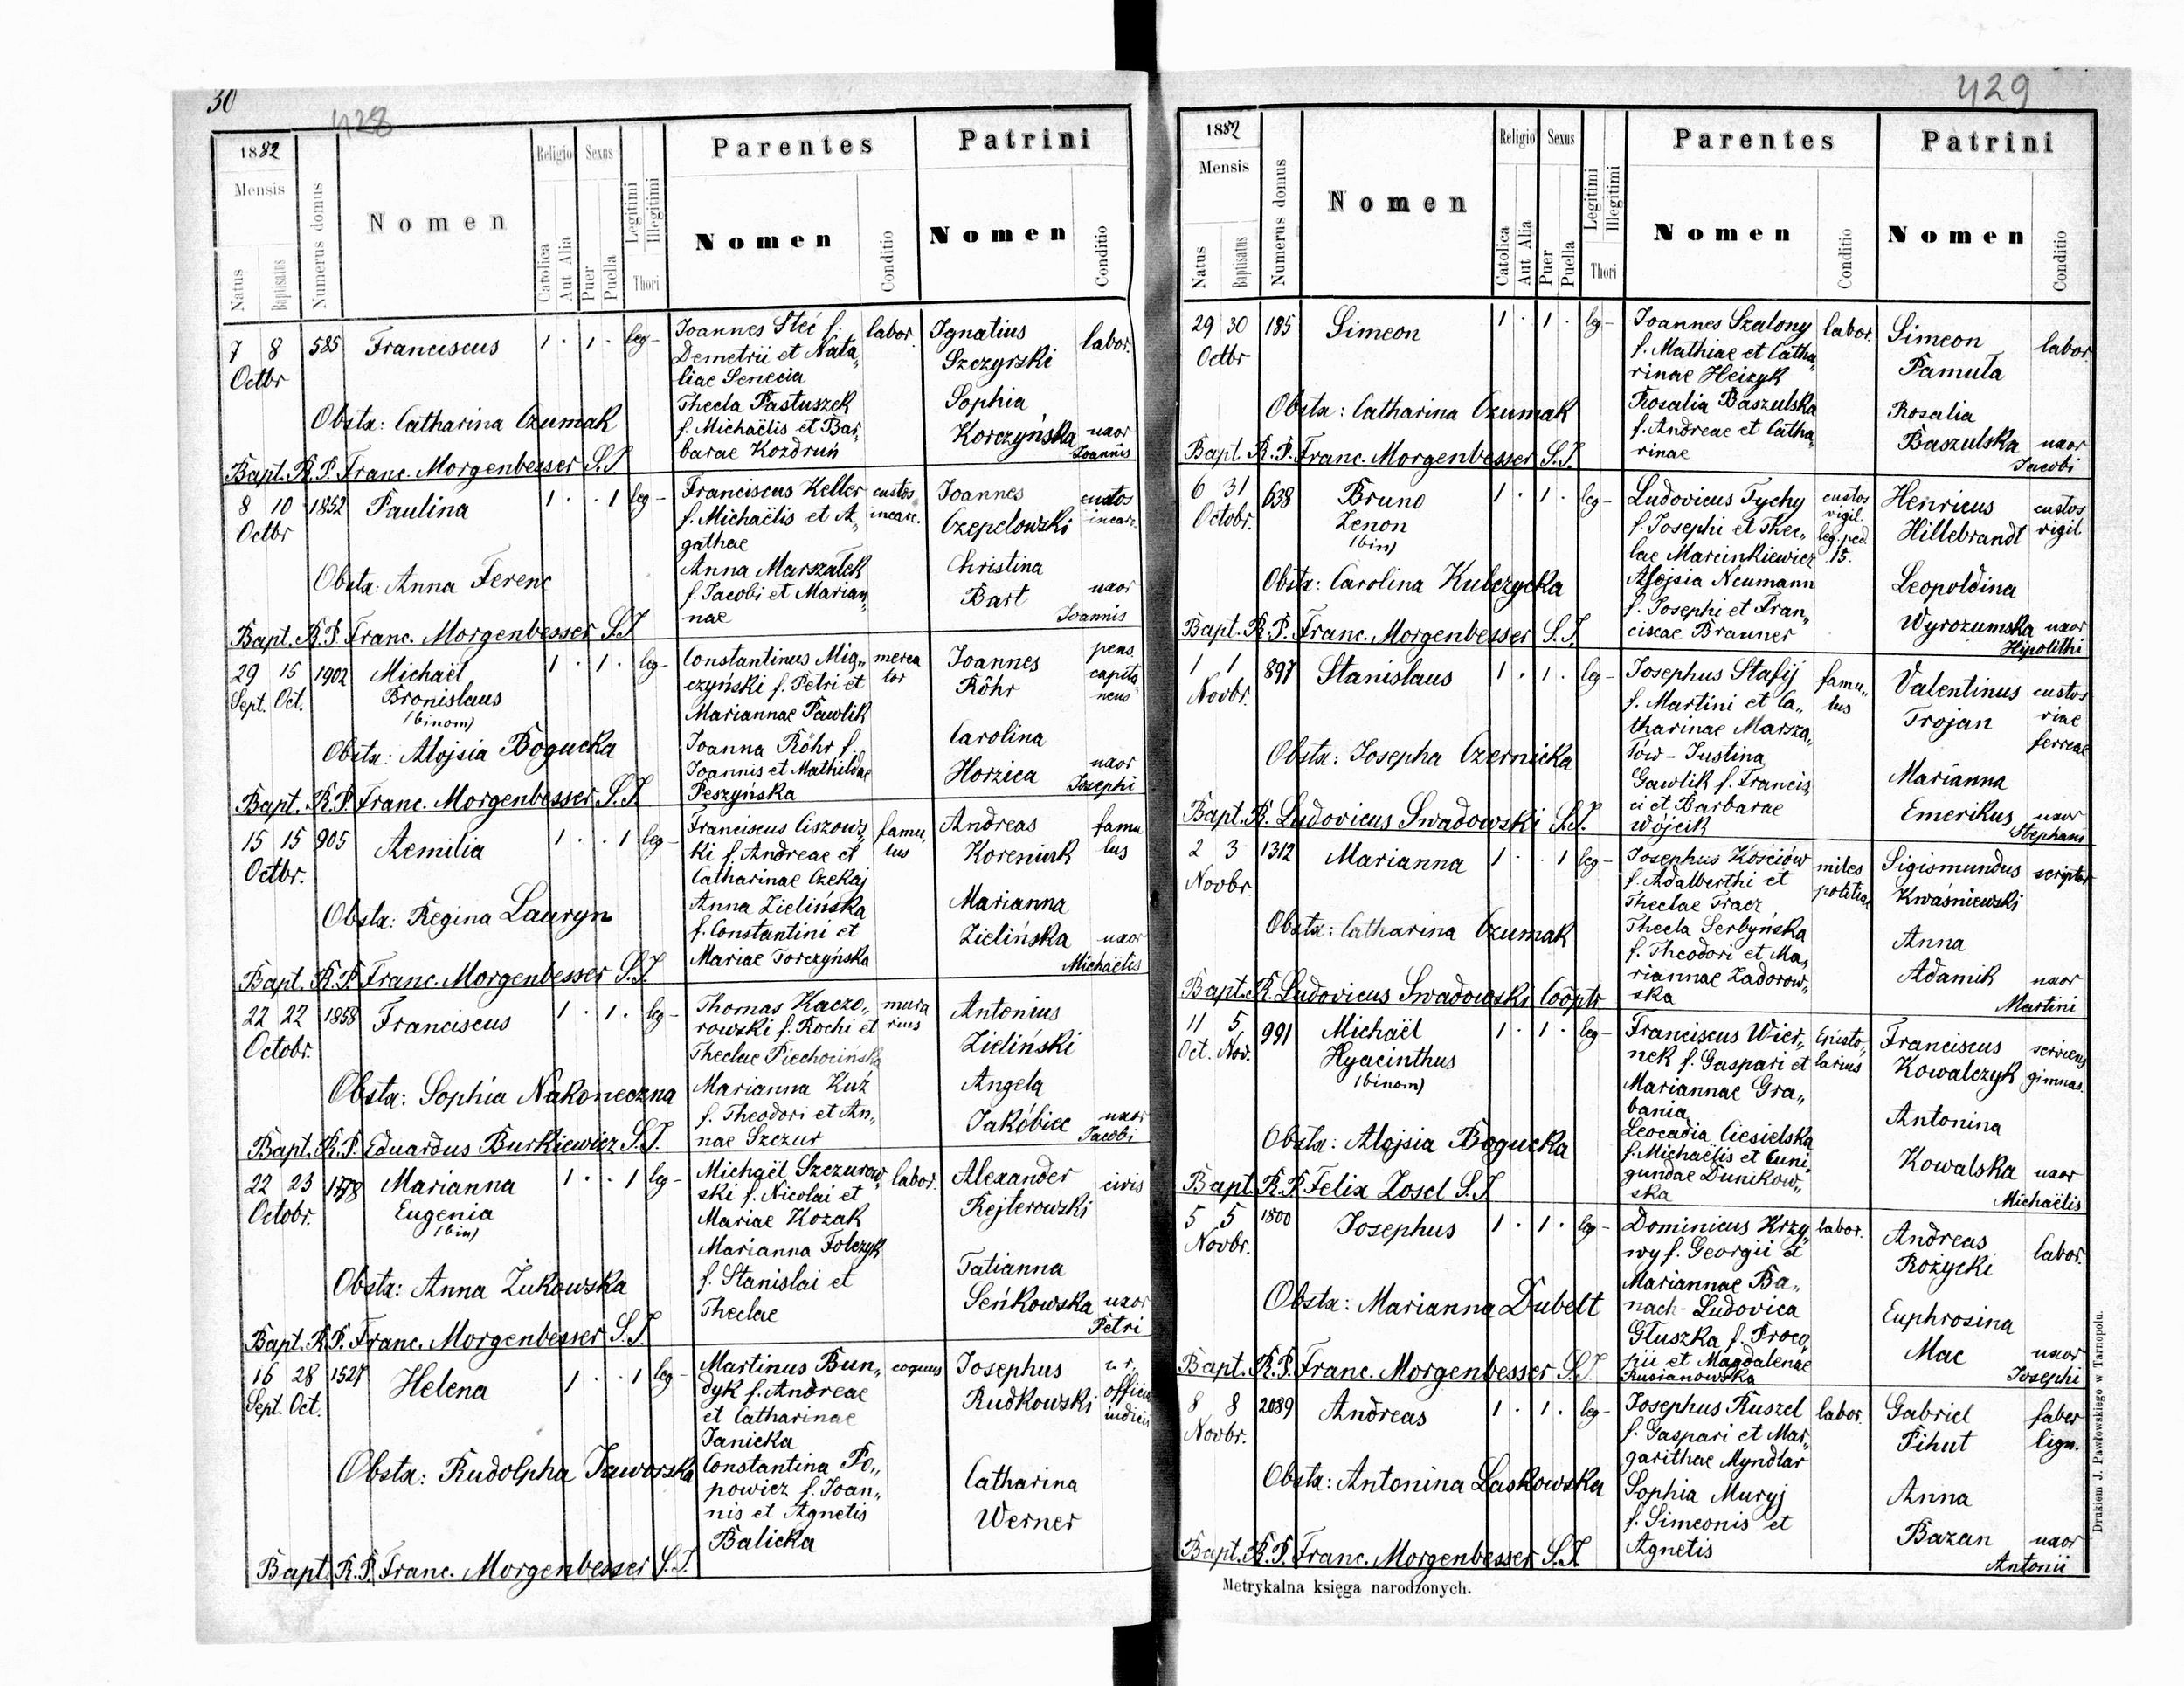 30
428
1882
Mensis
Natus
Baptisatus
Numerus domus
Nomen
Religio
Catolica
Aut Alia
Sexus
Puer
Puella
Legitimi
Illegitimi
Thori
Parentes
Nomen
Conditio
Patrini
Nomen
Conditio
7 8 585 Franciscus 1 · 1 · leg-
Octbr
Obstx: Catharina Czumak
Bapt. R. P. Franc. Morgenbesser S.J.
Joannes Steć f.
Demetrii et Nata„
liae Senecia
Thecla Pastuszek
f. Michaëlis et Bar„
barae Kozdruń
labor.
Ignatius
Szczyrski
labor.
Sophia
Korczyńska uxor
Joannis
8 10 1852 Paulina 1 · · 1 leg-
Octbr
Obstx: Anna Ferenc
Bapt. R. P. Franc. Morgenbesser S.J.
Franciscus Keller
f. Michaëlis et A„
gathae
Anna Marszałek
f. Jacobi et Marian„
nae
custos
incarc.
Joannes
Czepelowski
custos
incarc.
Christina
Bart uxor
Joannis
29 15 1902 Michaël 1 · 1 · leg-
Sept. Oct.
Bronislaus
(binom)
Obstx: Alojsia Bogucka
Bapt. R. P. Franc. Morgenbesser S.J.
Constantinus Mig„
czyński f. Petri et
Mariannae Pawlik
Joanna Röhr f.
Joannis et Mathildae
Peszyńska
merca
tor
Joannes
Röhr
pens.
capita
neus
Carolina
Horzica uxor
Josephi
15 15 905 Aemilia 1 · · 1 leg-
Octbr.
Obstx: Regina Lauryn
Bapt. R. P. Franc. Morgenbesser S.J.
Franciscus Ciszows„
ki f. Andreae et
Catharinae Czekaj
Anna Zielińska
f. Constantini et
Mariae Torczyńska
famu„
lus
Andreas
Koreniuk
famu
lus
Marianna
Zielińska uxor
Michaëlis
22 22 1858 Franciscus 1 · 1 · leg-
Octobr.
Obstx: Sophia Nakoneczna
Bapt. R. P. Eduardus Burkiewicz S.J.
Thomas Kaczo„
rowski f. Rochi et
Theclae Piechocińska
Marianna Kuź
f. Theodori et An„
nae Szczur
mura
rius
Antonius
Zieliński
Angela
Jakóbiec uxor
Jacobi
22 23 1778 Marianna 1 · · 1 leg-
Octobr.
Eugenia
(bin)
Obstx: Anna Żukowska
Bapt. R. P. Franc. Morgenbesser S.J.
Michaël Szczurow„
ski f. Nicolai et
Mariae Kozak
Marianna Tolczyk
f. Stanislai et
Theclae
labor.
Alexander
Rejterowski
civis
Tatianna
Seńkowska uxor
Petri
16 28 1527 Helena 1 · · 1 leg-
Sept. Oct.
Obstx: Rudolpha Jaworska
Bapt. R. P. Franc. Morgenbesser S.J.
Martinus Bun„
dyk f. Andreae
et Catharinae
Janicka
Constantina Po„
powicz f. Joan„
nis et Agnetis
Balicka
coquus
Josephus
Rudkowski
Catharina
Werner
429
1882
Mensis
Natus
Baptisatus
Numerus domus
Nomen
Religio
Catolica
Aut Alia
Sexus
Puer
Puella
Legitimi
Illegitimi
Thori
Parentes
Nomen
Conditio
Patrini
Nomen
Conditio
29 30 185 Simeon 1 · 1 · leg-
Octbr
Obstx: Catharina Czumak
Bapt. R. P. Franc. Morgenbesser S.J.
Joannes Szalony
f. Mathiae et Catha„
rinae Heizyk
Rosalia Baszulska
f. Andreae et Catha„
rinae
labor.
Simeon
Pamuła
labor
Rosalia
Baszulska uxor
Jacobi
6 31 638 Bruno 1 · 1 · leg-
Octobr.
Zenon
(bin)
Obstx: Carolina Kubczycka
Bapt. R. P. Franc. Morgenbesser S.J.
Ludovicus Tychy
f. Josephi et Thec„
lae Marcinkiewicz
Alojsia Neumann
f. Josephi et Fran„
ciscae Brauner
custos
vigil.
leg. ped.
15.
Henricus
Hillebrandt
custos
vigil.
Leopoldina
Wyrozumska uxor
Hipolithi
1 1 897 Stanislaus 1 · 1 · leg-
Novbr.
Obstx: Josepha Czernicka
Bapt. R. Ludovicus Swadowski S.J.
Josephus Stafij
f. Martini et Ca„
tharinae Marsza„
łów - Justina
Gawlik f. Francis„
ci et Barbarae
Wójcik
famu„
lus
Valentinus
Trojan
custos
viae
ferreae
Marianna
Emerikus uxor
Stephani
2 3 1312 Marianna 1 · · 1 leg-
Novbr.
Obstx: Catharina Czumak
Bapt. R. Ludovicus Swadowski Cooptr
Josephus Kościów
f. Adalberthi et
Theclae Tracz
Thecla Serbyńska
f. Theodori et Ma„
riannae Zadorow„
ska
miles
politiae
Sigismundus
Kwaśniewski
scriptor
Anna
Adamik uxor
Martini
11 5 991 Michaël 1 · 1 · leg-
Oct. Nov.
Hyacinthus
(binom)
Obstx: Alojsia Bogucka
Bapt. R. P. Felix Zosel S.J.
Franciscus Wier„
nek f. Gaspari et
Mariannae Gra„
bania
Leocadia Ciesielska
f. Michaëlis et Cuni„
gundae Dunikow„
ska
Episto„
larius
Franciscus
Kowalczyk
serviens
gimnas.
Antonina
Kowalska uxor
Michaëlis
5 5 1800 Josephus 1 · 1 · leg-
Novbr.
Obstx: Marianna Dubelt
Bapt. R. P. Franc. Morgenbesser S.J.
Dominicus Krzy„
wy f. Georgii et
Mariannae Ba„
nach - Ludovica
Głuszka f. Proco„
pii et Magdalenae
Rusianowska
labor.
Andreas
Rożycki
labor.
Euphrosina
Mac uxor
Josephi
8 8 2089 Andreas 1 · 1 · leg-
Novbr.
Obstx: Antonina Laskowska
Bapt. R. P. Franc. Morgenbesser S.J.
Josephus Ruszel
f. Gaspari et Mar„
garithae Myndlar
Sophia Muryj
f. Simeonis et
Agnetis
labor.
Gabriel
Pihut
faber
lign.
Anna
Bazan uxor
Antonii
Metrykalna księga narodzonych.
Drukiem J. Pawłowskiego w Tarnopolu.